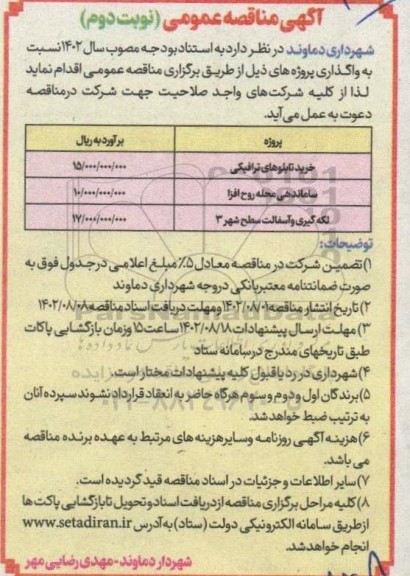 آگهی مناقصه عمومی (نوبت دوم)
شهرداری دماوند در نظر دارد به استناد بودجه مصوب سال ۱۴۰۲ نسبت
به واگذاری پروژه های ذیل از طریق برگزاری مناقصه عمومی اقدام نماید
لذا از کلیه شرکت‌های واجد صلاحیت جهت شرکت درمناقصه
دعوت به عمل می‌آید.
پروژه برآورد به ریال
خرید تابلوهای ترافیکی ۱۵/۰۰۰/۰۰۰/۰۰۰
ساماندهی محله روح افزا ۱۰/۰۰۰/۰۰۰/۰۰۰
لکه گیری و آسفالت سطح شهر ۳ ۱۷/۰۰۰/۰۰۰/۰۰۰
توضیحات:
۱) تضمین شرکت در مناقصه معادل ۵٪ مبلغ اعلامی درجدول فوق به
صورت ضمانتنامه معتبربانکی دروجه شهرداری دماوند
۲) تاریخ انتشار مناقصه ۱۴۰۲/۰۸/۰۱ و مهلت دریافت اسناد مناقصه ۱۴۰۲/۰۸/۰۸
۳) مهلت ارسال پیشنهادات ۱۴۰۲/۰۸/۱۸ ساعت ۱۵ وزمان بازگشایی پاکات
طبق تاریخهای مندرج درسامانه ستاد
۴) شهرداری در رد یا قبول کلیه پیشنهادات مختار است.
۵) برندگان اول و دوم و سوم هرگاه حاضر به انعقاد قرارداد نشوند سپرده آنان
به ترتیب ضبط خواهد شد.
۶) هزینه آگهی روزنامه وسایرهزینه های مرتبط به عهده برنده مناقصه
می باشد.
۷) سایر اطلاعات و جزئیات در اسناد مناقصه قید گردیده است.
۸) کلیه مراحل برگزاری مناقصه از دریافت اسناد و تحویل تا بازگشایی پاکت ها
ازطریق سامانه الکترونیکی دولت (ستاد) به آدرس www.setadiran.ir
انجام خواهدشد.
شهردار دماوند - مهدی رضایی مهر